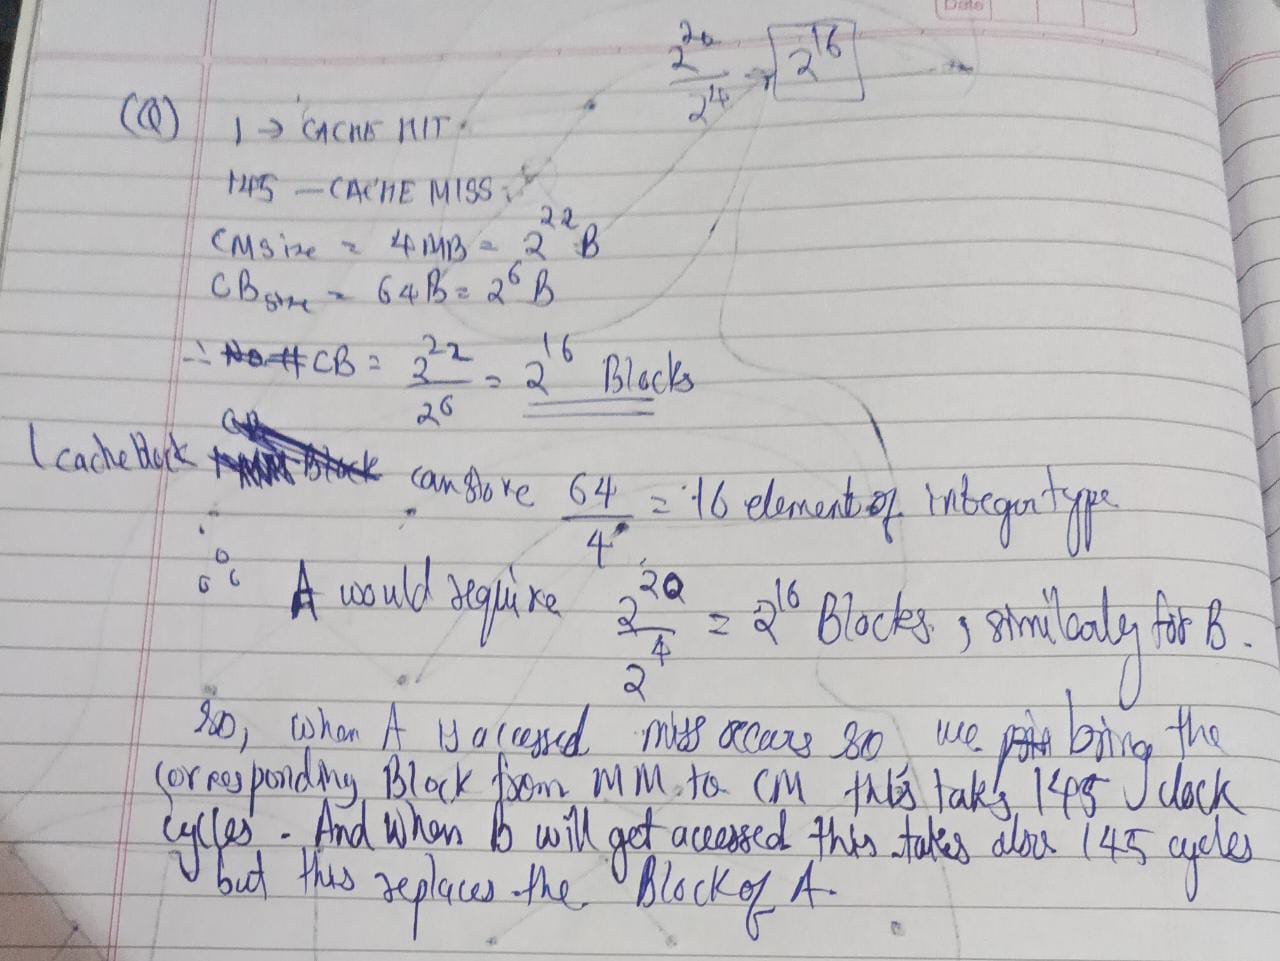 Date
2^20 / 2^4 → 2^16
(Q) 1 → CACHE HIT.
145 — CACHE MISS.
CM size = 4MB = 2^22 B
CB size = 64B = 2^6 B
∴ # CB = 2^22 / 2^6 = 2^16 Blocks
1 cache block can store 64/4 = 16 element of integer type
∴ A would require 2^20 / 2^4 = 2^16 Blocks, similarly for B.
so, when A is accessed miss occurs so we bring the
corresponding Block from MM to CM this takes 145 clock
cycles. And when B will get accessed this takes also 145 cycles
but this replaces the Block of A.